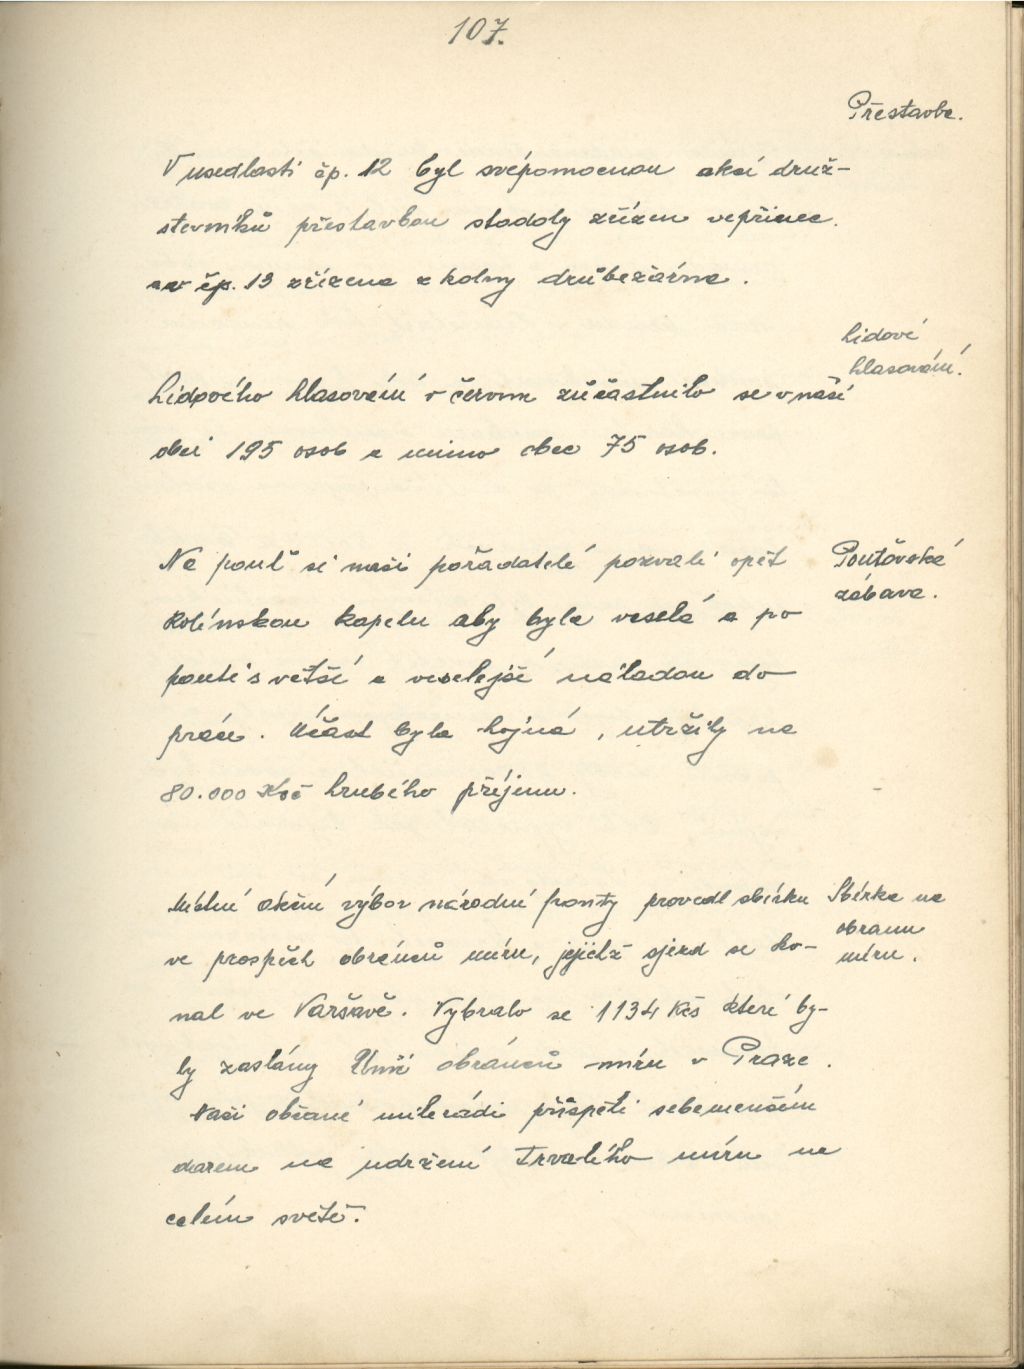 107.
Přestavba.
V usedlosti čp. 12 byl svépomocnou akcí druž-
stevníků přestavbou stodoly zřízen vepřinec.
a v čp. 13 zřízena z kolny drůbežárna.
Lidové
hlasování.
Lidového hlasování v červnu zůčastnilo se v naší
obci 195 osob a mimo obec 75 osob.
Na pouť si naši pořadatelé pozvali opět
Poutóvská
zábava.
Kolínskou kapelu aby byla veselá a po
pouti s větší a veselejší náladou do
práce. Účast byla hojná, utržily na
80.000 Kčs hrubého příjmu.
Místní akční výbor národní fronty provedl sbírku
Sbírka na
obranu
míru.
ve prospěch obránců míru, jejichž sjezd se ko-
nal ve Varšavě. Vybralo se 1134 Kčs které by-
ly zaslány Unii obránců míru v Praze.
Naši občané milerádi přispěli sebemenším
darem na udržení trvalého míru na
celém světě.